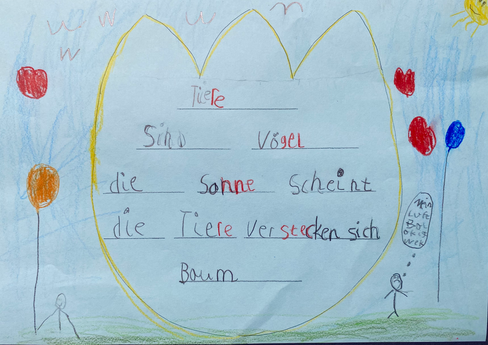 Tiere
Sind Vögel
die Sonne Scheint
die Tiere verstecken sich
Baum
Mein
Luft
Bal